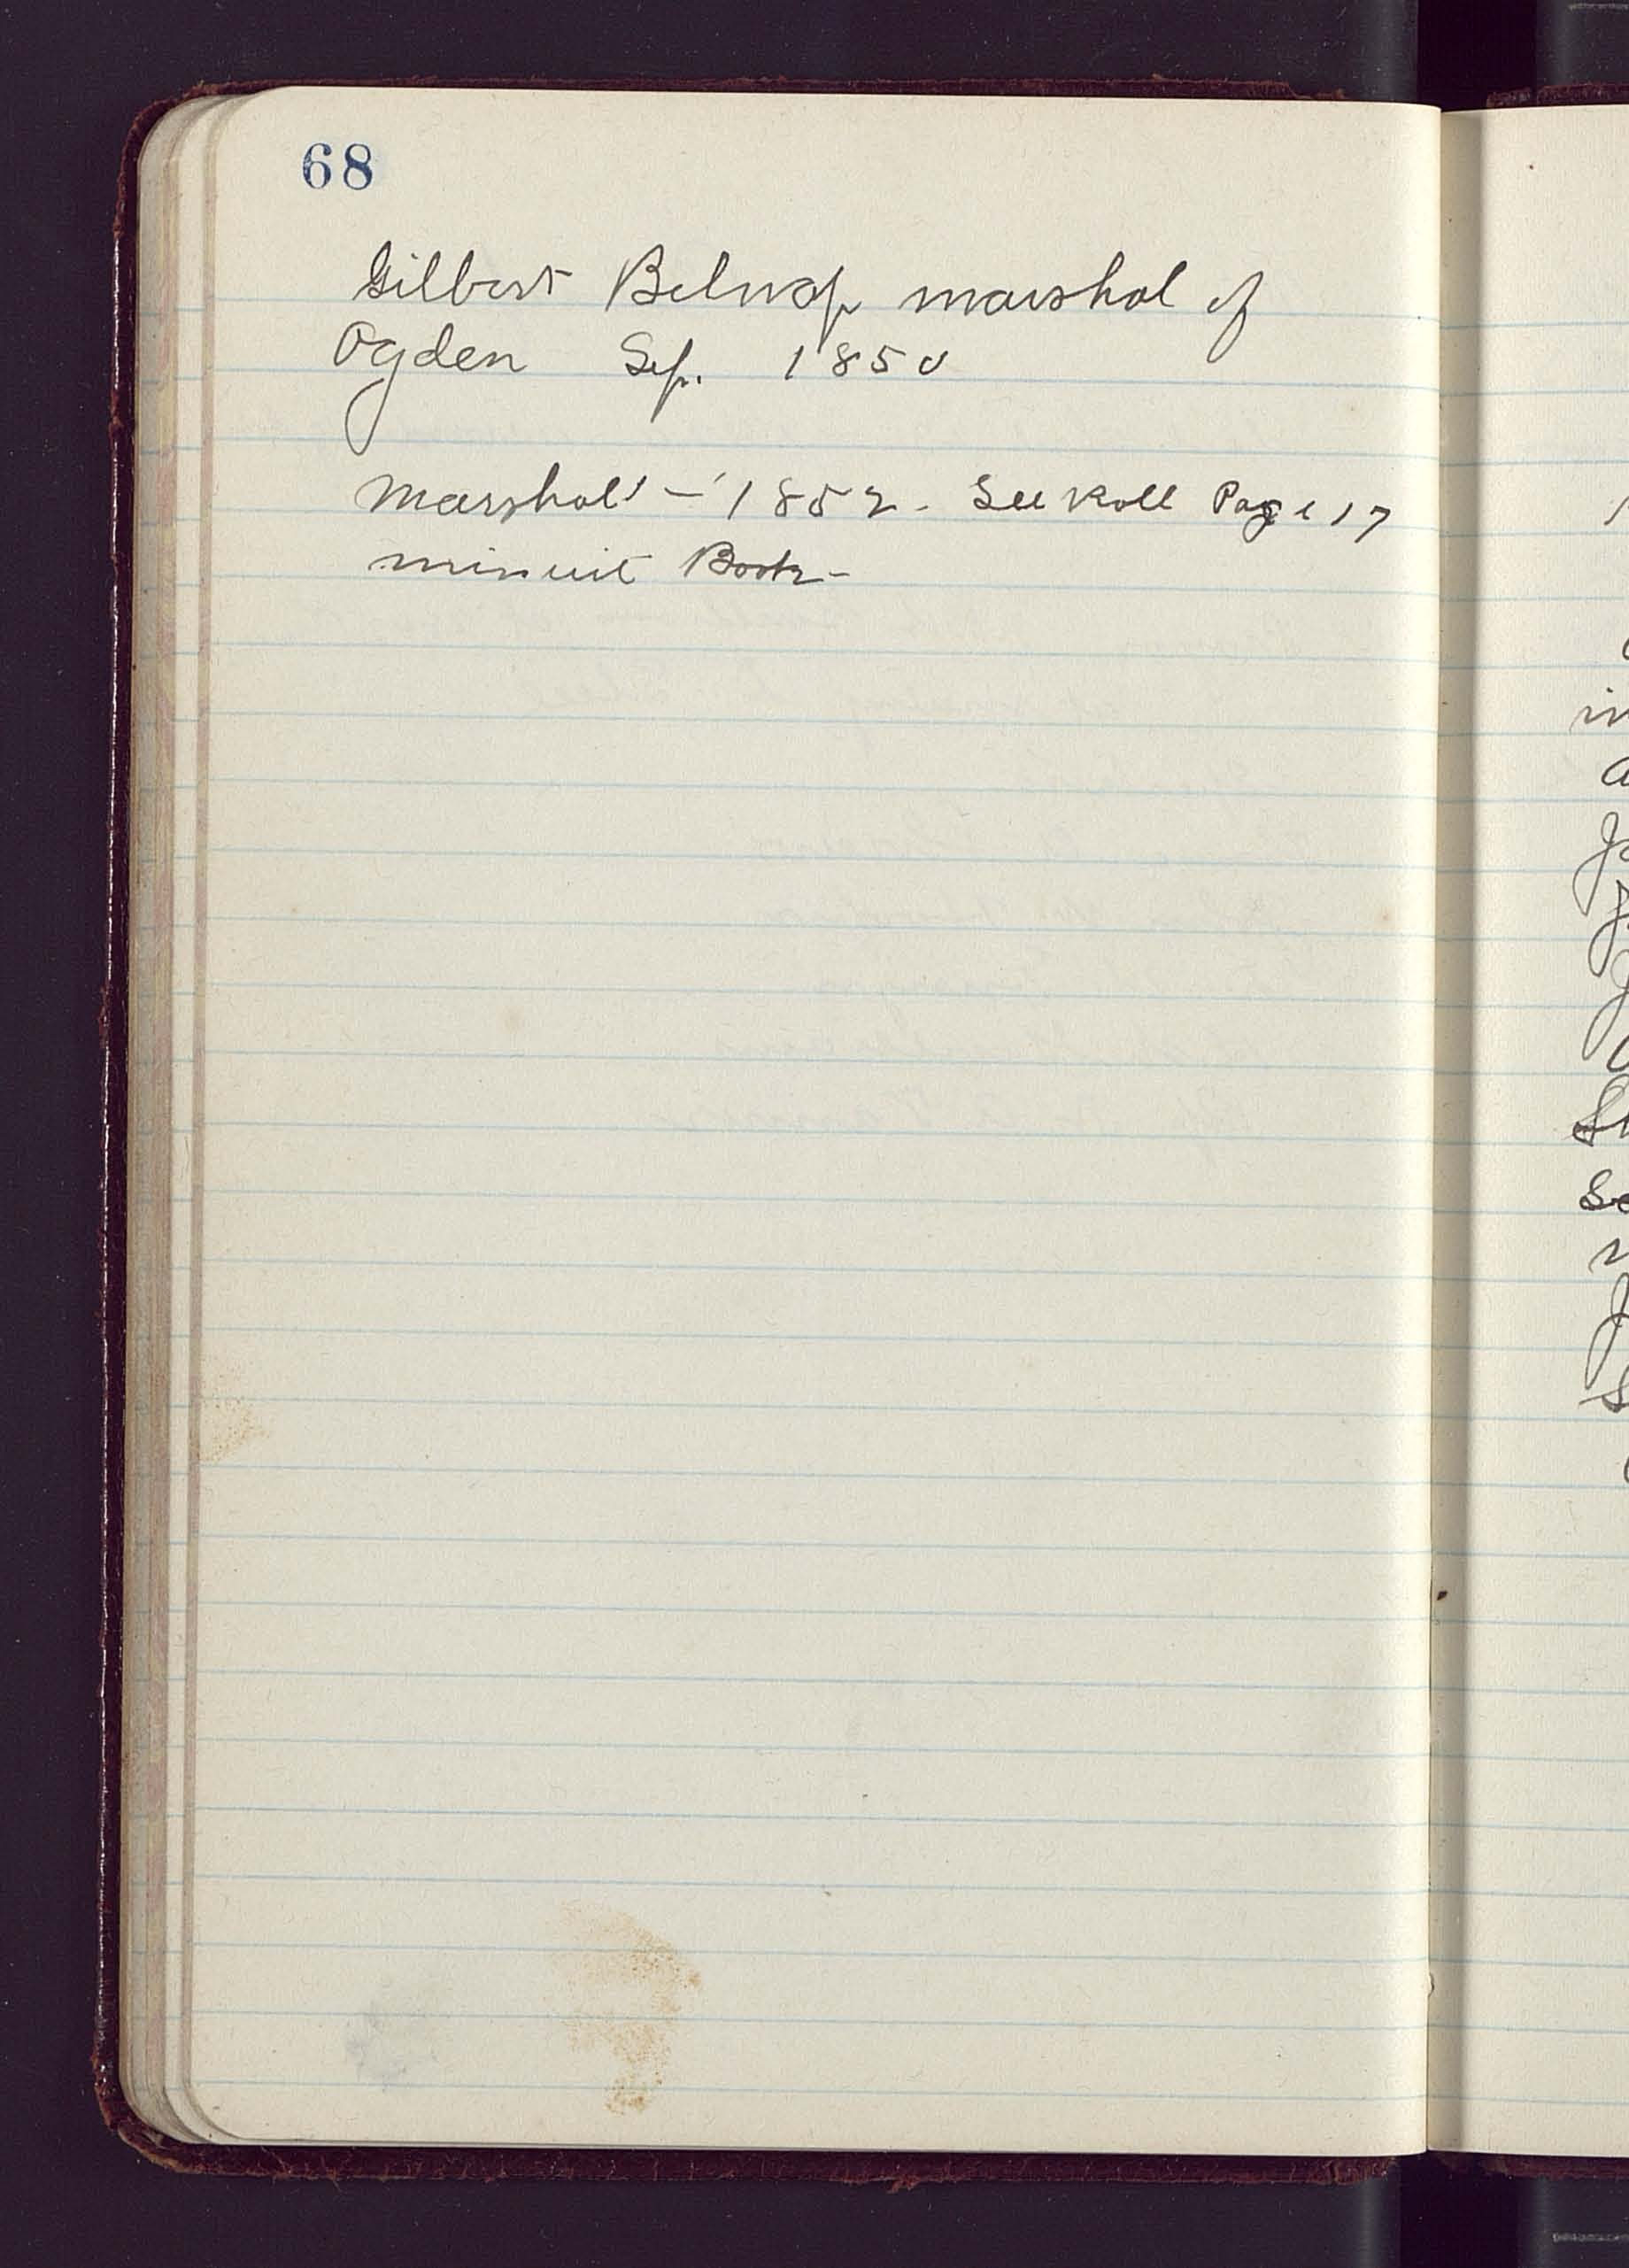 68
Gilbert Belnap marshal of
Ogden Sep. 1850
Marshal - 1852 - See Roll Page 17
minuit Book -